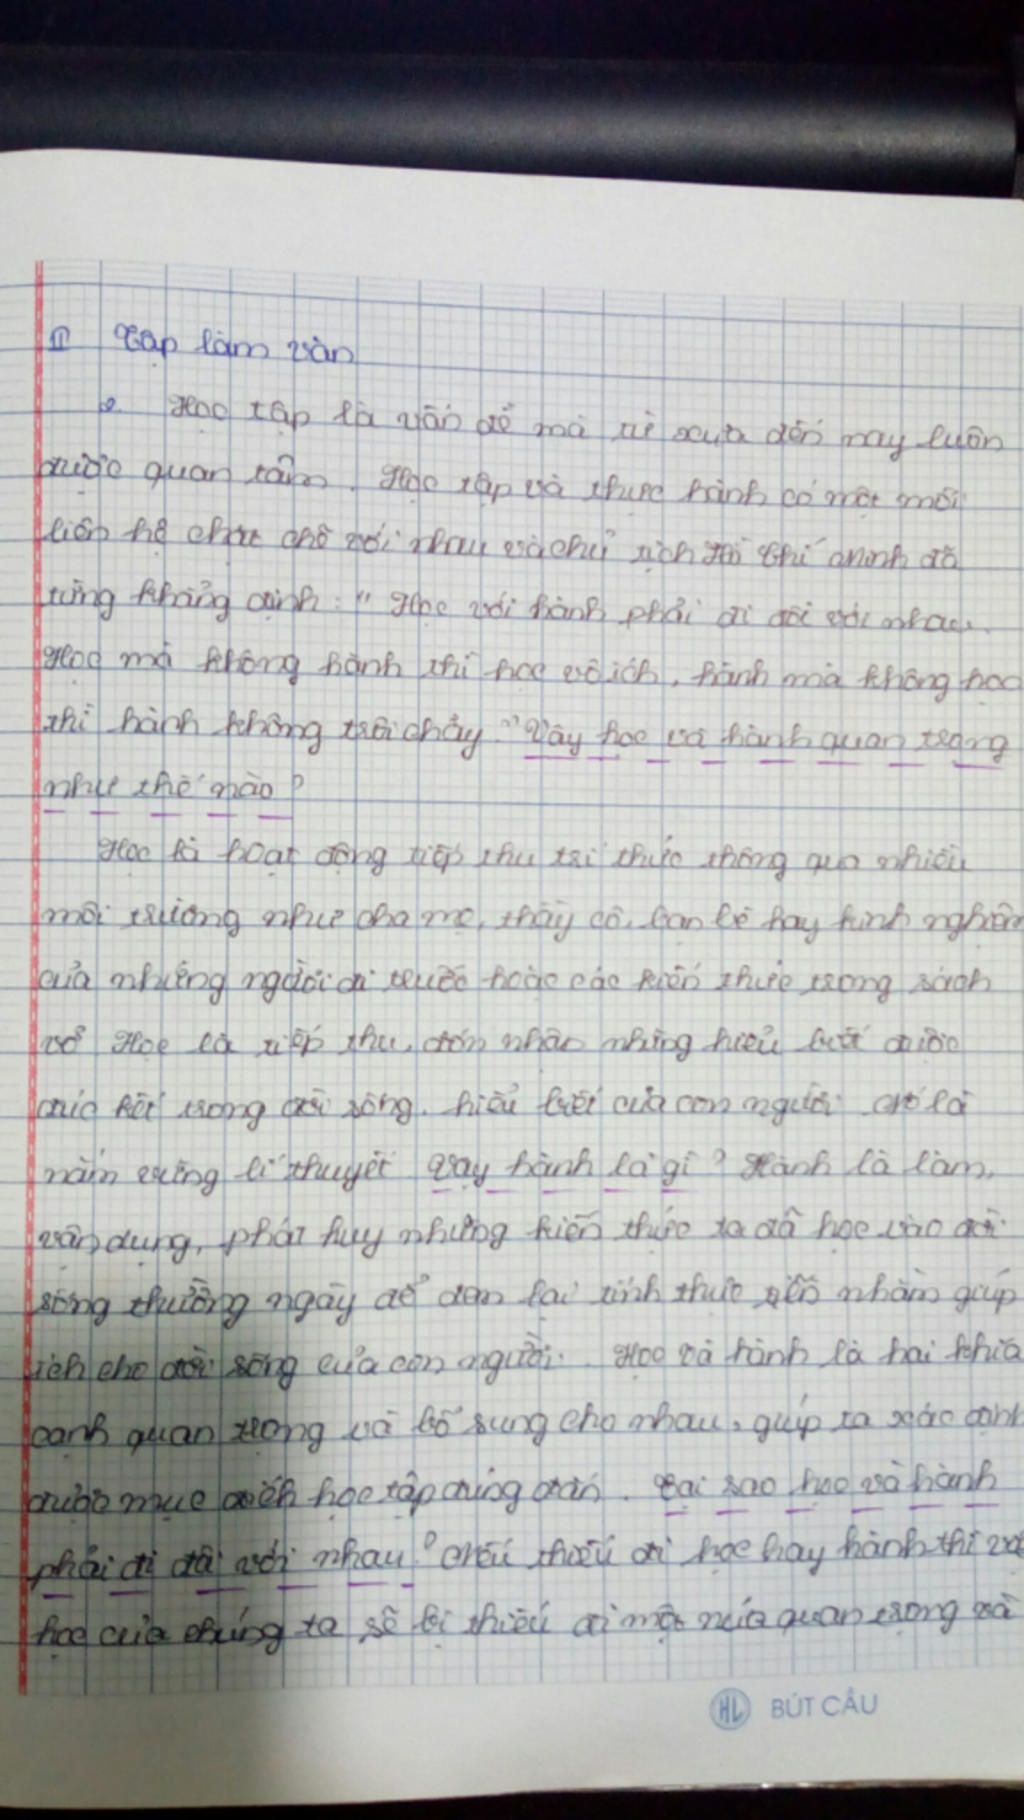 II Tập làm văn
2. Học tập là vấn đề mà từ xưa đến nay luôn
được quan tâm. Học tập và thực hành có một mối
liên hệ chặt chẽ với nhau và chủ tịch Hồ Chí Minh đã
từng khẳng định: " Học với hành phải đi đôi với nhau.
Học mà không hành thì học vô ích, hành mà không học
thì hành không trôi chảy." Vậy học và hành quan trọng
như thế nào?
Học là hoạt động tiếp thu tri thức thông qua nhiều
môi trường như cha mẹ, thầy cô, bạn bè hay kinh nghiệm
của những người đi trước hoặc các kiến thức trong sách
vở Học là tiếp thu, đón nhận những hiểu biết được
đúc kết trong đời sống, hiểu biết của con người đó là
nắm vững lí thuyết Vậy hành là gì? Hành là làm,
vận dụng, phát huy những kiến thức ta đã học vào đời
sống thường ngày để đem lại tính thực tiễn nhằm giúp
ích cho đời sống của con người. Học và hành là hai khía
cạnh quan trọng và bổ sung cho nhau, giúp ta xác định
được mục đích học tập đúng đắn. Tại sao học và hành
phải đi đôi với nhau? Nếu thiếu đi học hay hành thì việc
học của chúng ta sẽ bị thiếu đi một nửa quan trọng và
HL BÚT CÂU